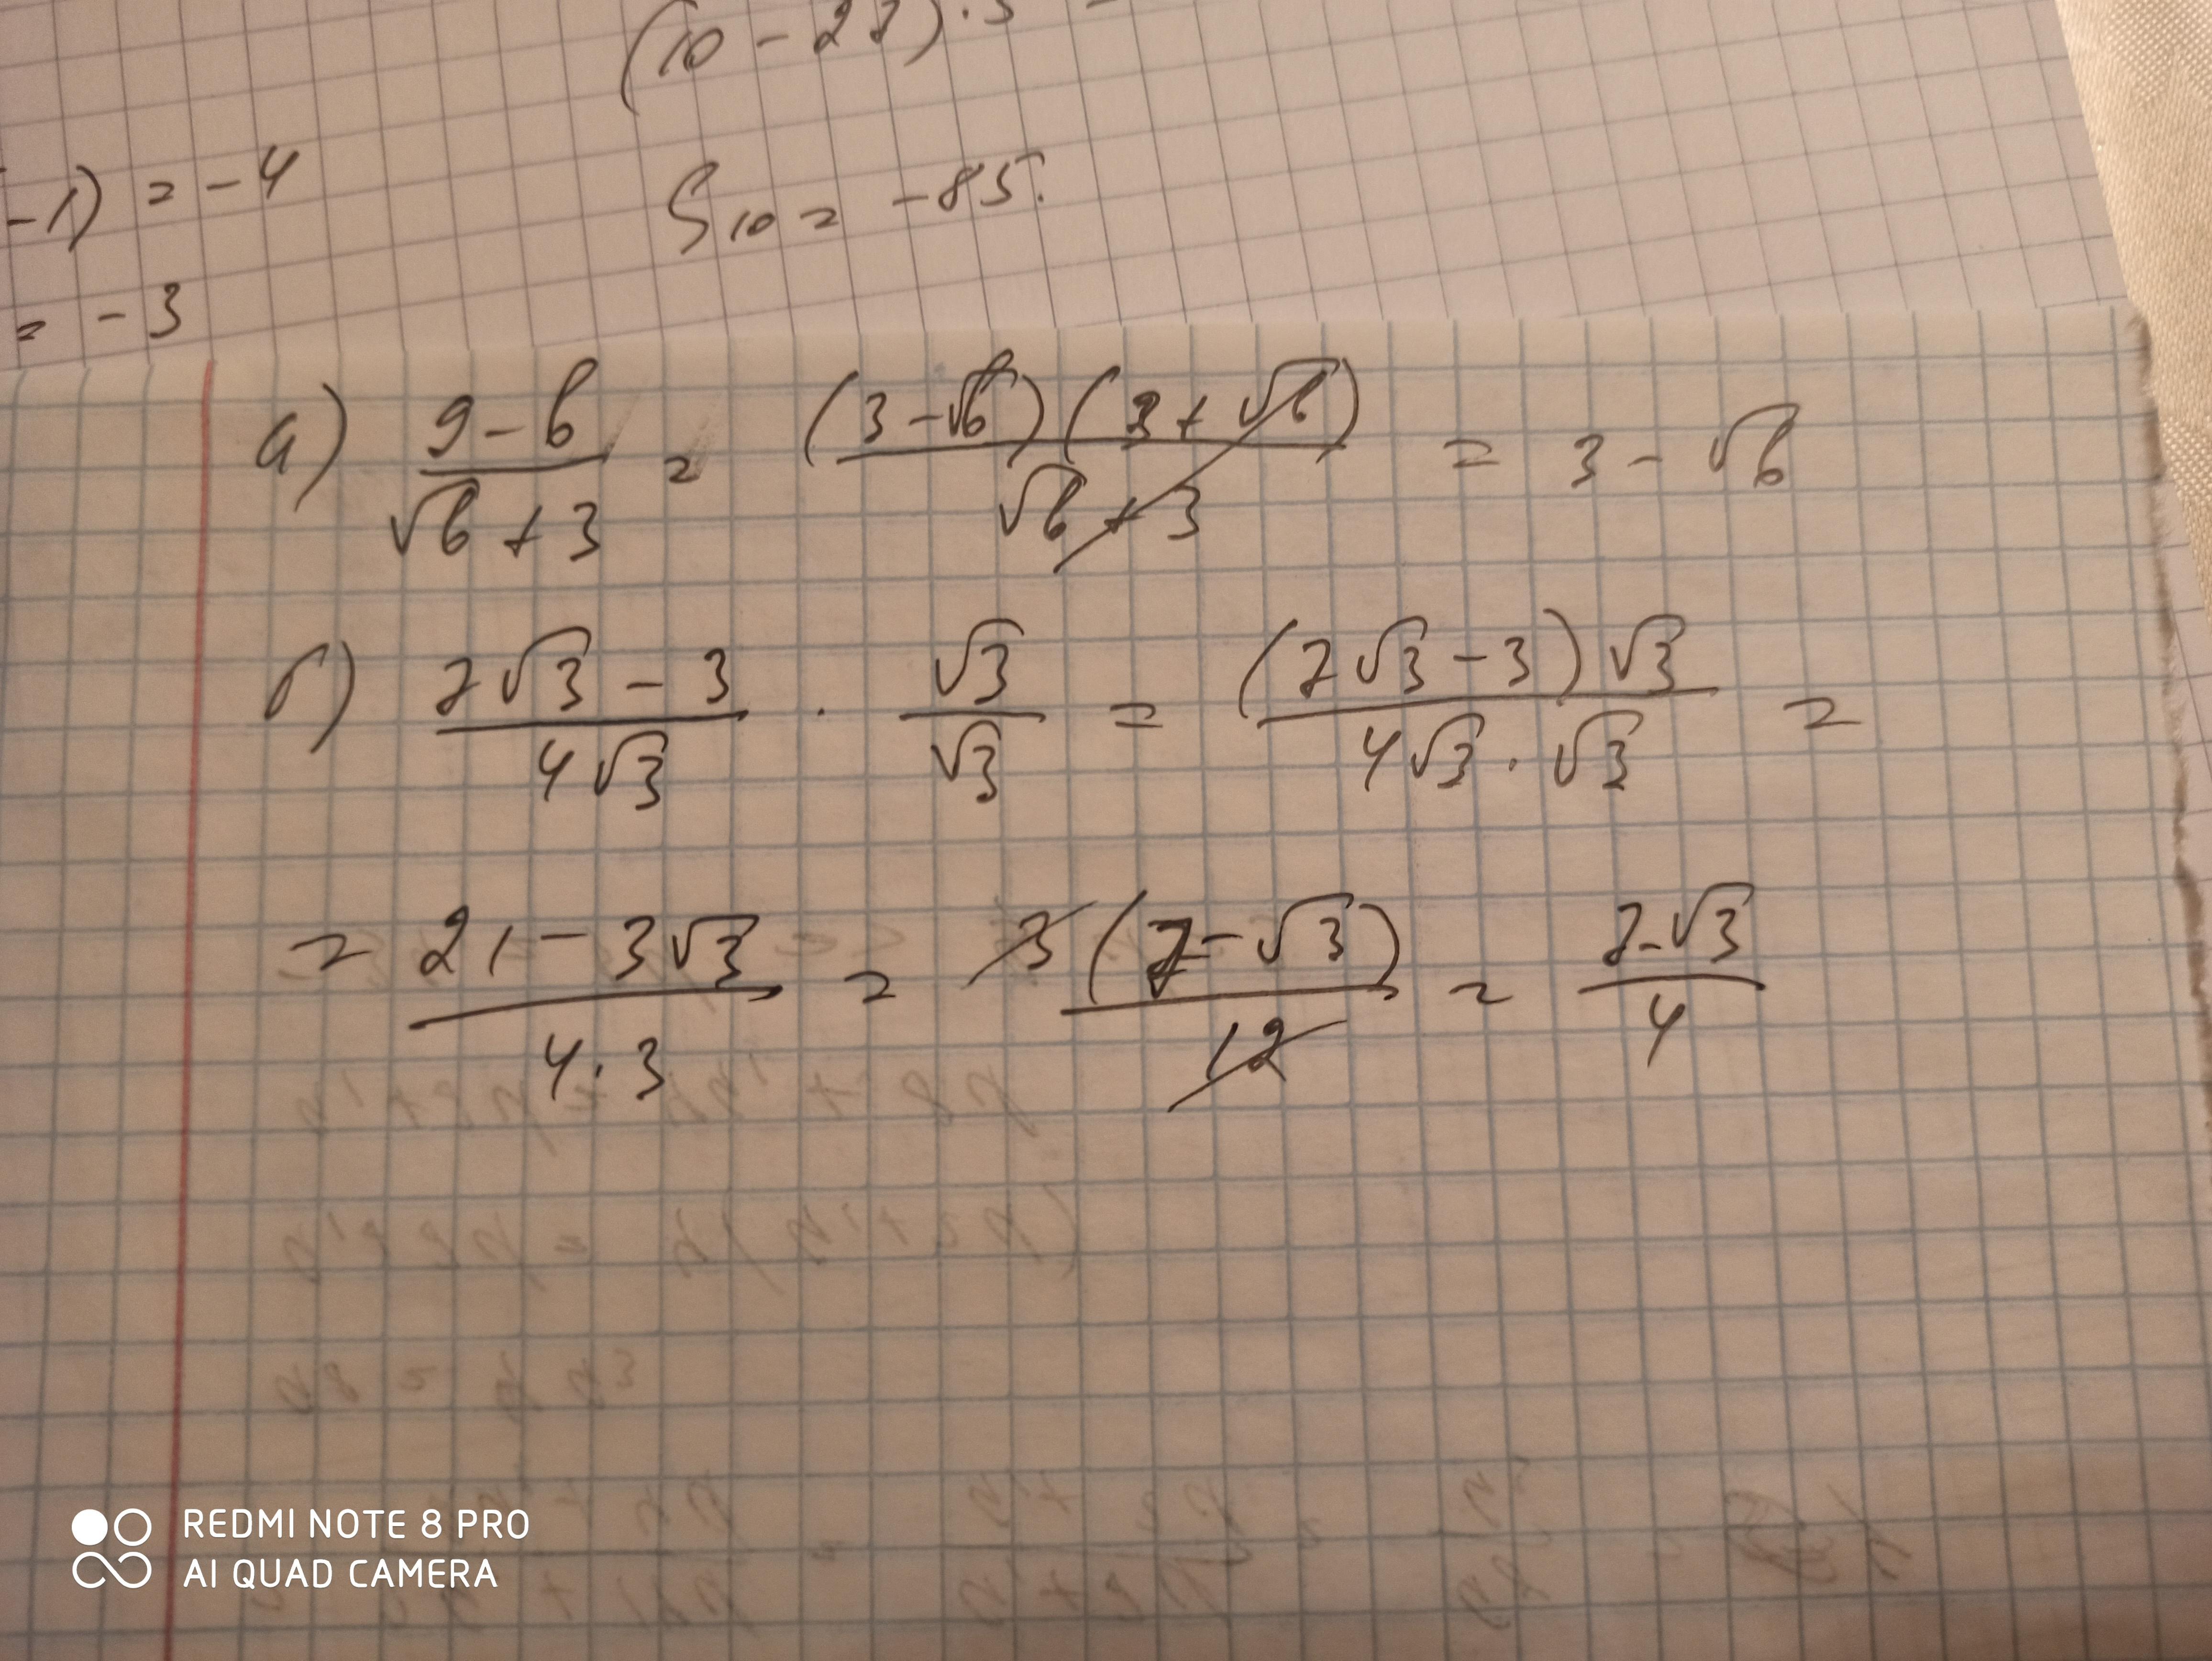 (10 - 27) · 5
-1) = -4
S₁₀ = -85.
= -3
а) (9 - b)/(√b + 3) = ((3 - √b)(3 + √b))/(√b + 3) = 3 - √b
б) (7√3 - 3)/(4√3) · √3/√3 = ((7√3 - 3)√3)/(4√3 · √3) =
= (21 - 3√3)/(4 · 3) = 3(7 - √3)/12 = (7 - √3)/4
REDMI NOTE 8 PRO
AI QUAD CAMERA